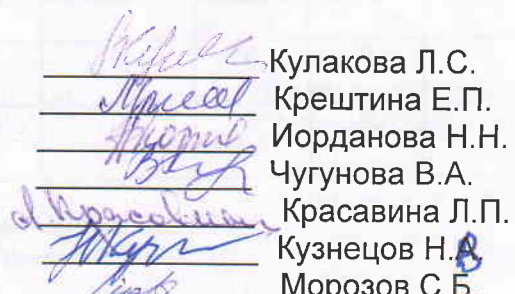 Кулакова Л.С.
Крештина Е.П.
Иорданова Н.Н.
Чугунова В.А.
Л. Красавина Красавина Л.П.
Кузнецов Н.В
Морозов С.Б.